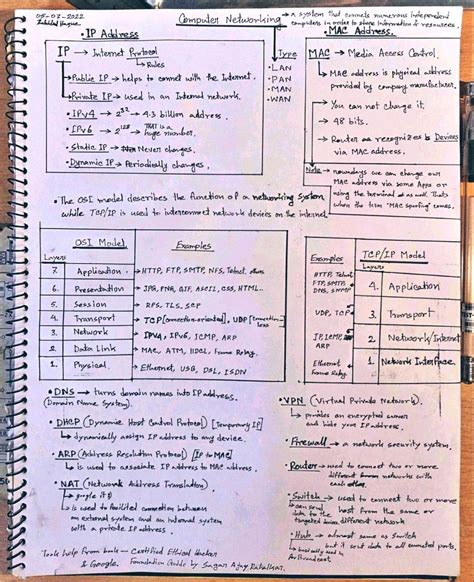 05-07-2022
Computer Networking → a system that connets numerous independent
computers in order to share information & resources.
• IP Address
IP → Internet Protocol
↳ Rules
→ Public IP → helps to connet with the Internet.
→ Private IP → used in an Internal network.
• IPv4 → 2³² → 4.3 billion address.
• IPv6 → 2¹²⁸ → THAT is a
huge number.
• Static IP → Never changes.
• Dynamic IP → Periodically changes.
Type
• LAN
• PAN
• MAN
• WAN
• MAC Address.
MAC → Media Access Control.
↳ MAC address is physical address
provided by company manufacturer.
→ You can not change it.
→ 48 bits.
→ Router recognizes Devices
via MAC address.
Note → nowadays we can change our
MAC address via some Apps or
using the terminal as well. That's
where the term "MAC spoofing" comes.
• The OSI model describes the function of a networking system
while TCP/IP is used to interconnect network devices on the internet
OSI Model
Examples
Layers
7. Application → HTTP, FTP, SMTP, NFS, Telnet,
6. Presentation → JPG, PNG, GIF, ASCII, CSS, HTML..
5. Session → RPS, TLS, SCP
4. Transport → TCP [connection-oriented], UDP [connection-less
3. Network → IPV4, IPv6, ICMP, ARP
2. Data Link → MAC, ATM, HDCL, Frame Relay.
1. Physical. → Ethernet, USB, DSL, ISDN
Examples
TCP/IP Model
Layers
HTTP, Telnet
FTP, SMTP
DNS, SNMP
4. Application
UDP, TCP
3. Transport
IP, ICMP,
ARP
2. Network/Internet
Ethernet
Frame Relay.
1. Network Interface
• DNS → turns domain names into IP address.
(Domain Name System).
• DHCP (Dynamic Host Control Protocol) [Temporary IP]
↳ dynamically assign IP address to any device.
• ARP (Address Resolution Protocol) [IP to MAC]
↳ is used to associate IP address to MAC address.
• NAT (Network Address Translation)
↳ google it :)
↳ is used to connection between
an external system and an internal system
with a private IP address.
• VPN (Virtual Private Network).
↳ provides an encrypted
and hide your IP address.
• Firewall → a network security system.
• Router → used to connect two or more
different networks with
each other.
• Switch → used to connect two or more
↳ can send
data to the host from the same or
targeted different network
• Hub → almost same as Switch
but it sent data to all connected ports.
↳ basically used in
Took help from book — Certified Ethical Hacker
& Google. Foundation Guide by Sagar Ajay Rahalkar.